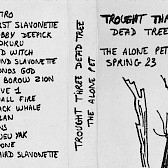 TRO
RST SLAVONETTE
OBBY DEEFICK
OKURU
D WITCH
OND SLAVONETTE
ONOS GOD
BOROW ZION
VE 1
ALL FIRE
ACK WHALE
LAN
S
NEU YAK
ONE
HIRD SLAVONETTE
TROUGHT THREE DEAD TREE
THE ALONE PET
TROUGHT T
DEAD TREE
THE ALONE PET
SPRING 23